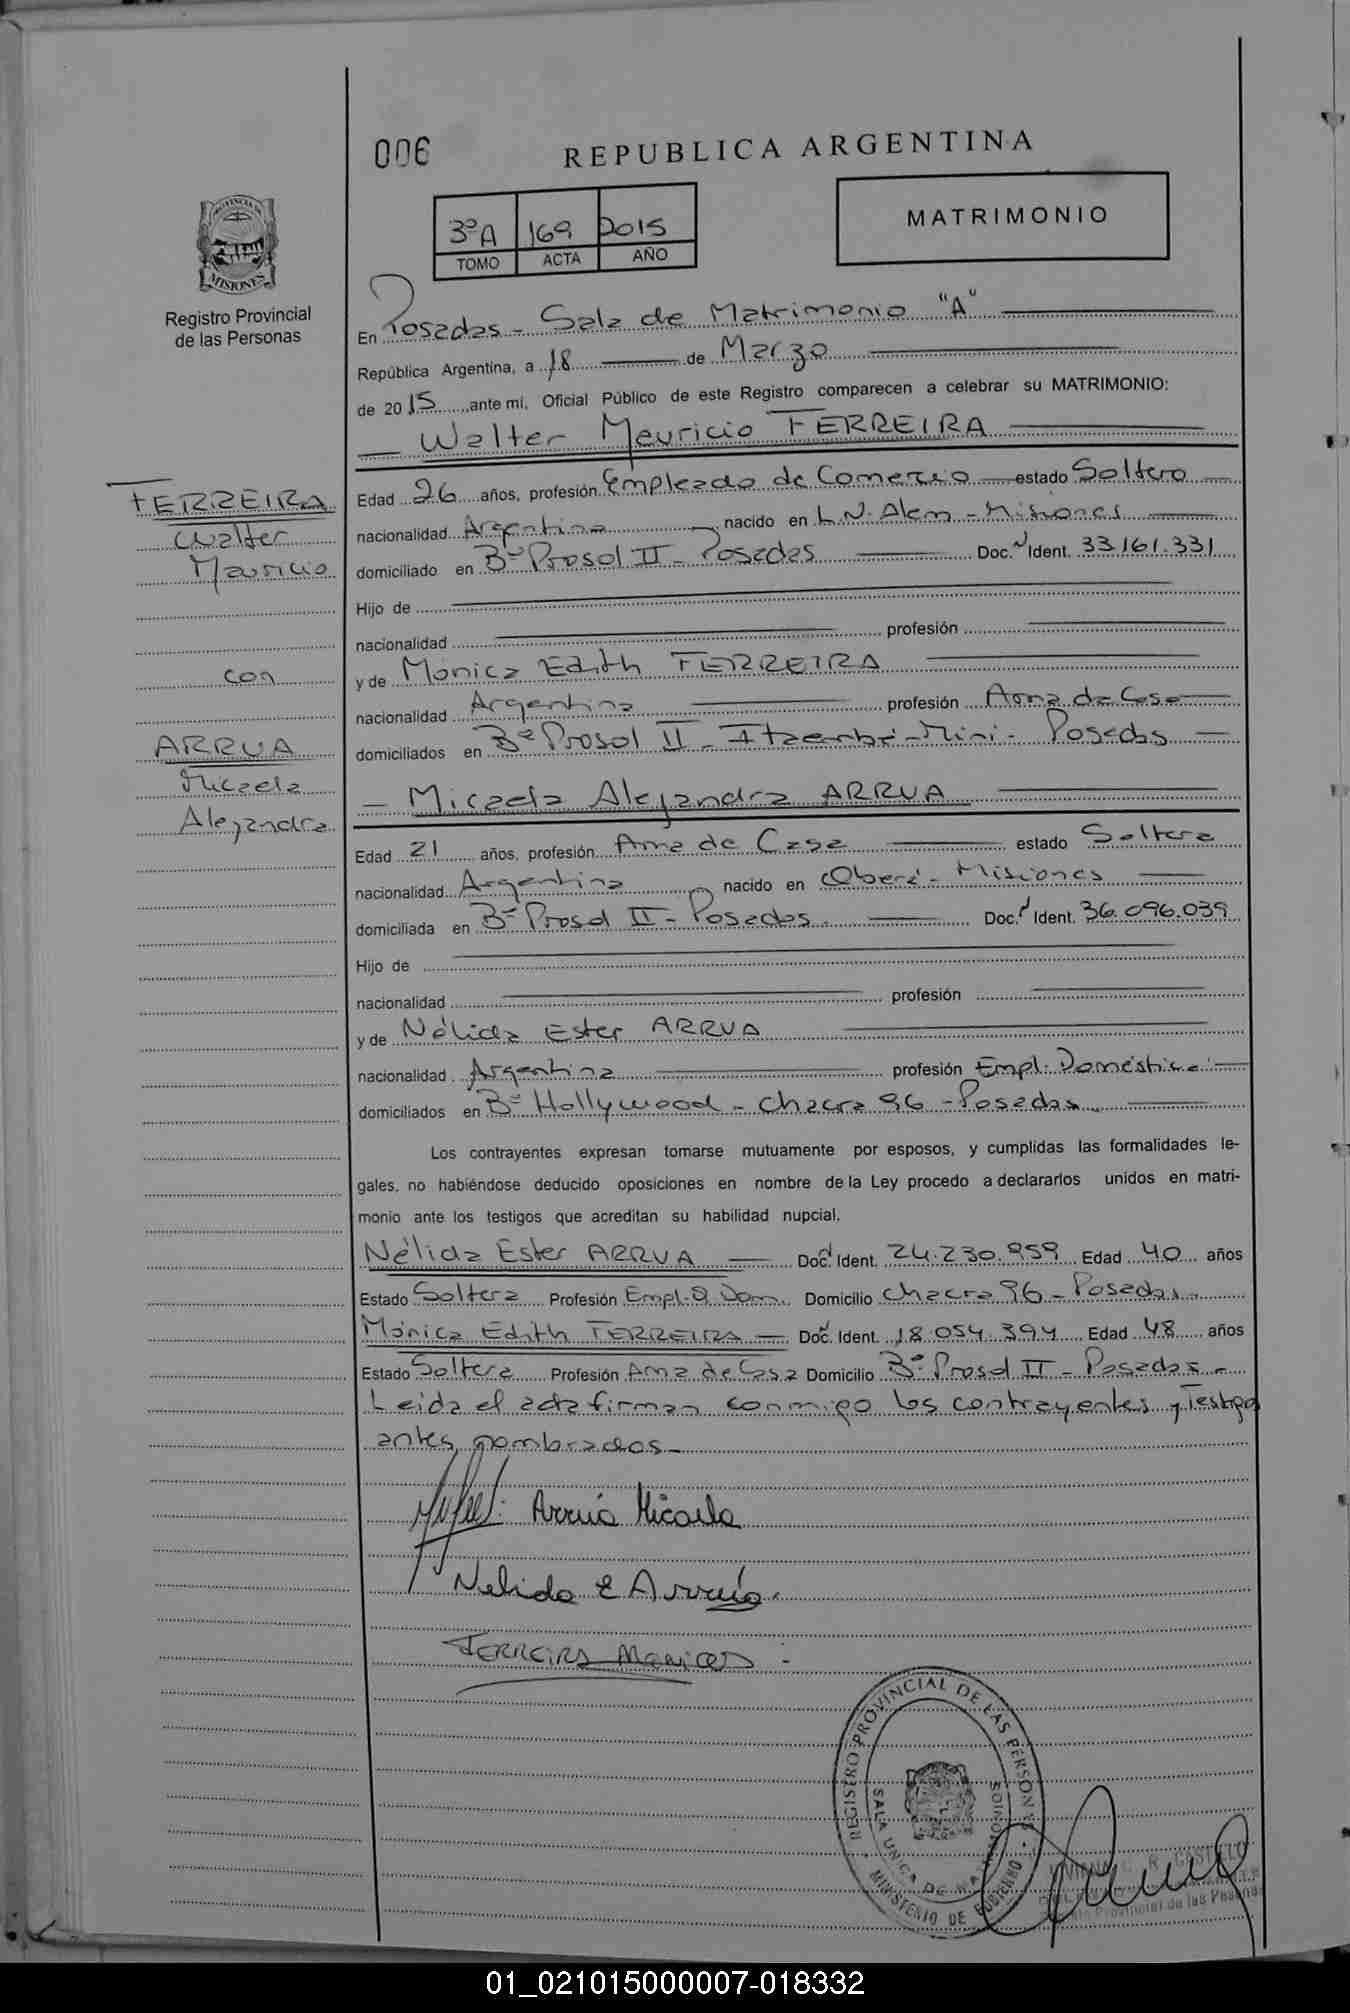 006
REPUBLICA ARGENTINA
3ºA 169 2015
TOMO ACTA AÑO
MATRIMONIO
PROVINCIA DE MISIONES
Registro Provincial
de las Personas
En Posadas - Sala de Matrimonio "A"
República Argentina, a 18 de Marzo
de 2015 ante mi, Oficial Público de este Registro comparecen a celebrar su MATRIMONIO:
Walter Mauricio FERREIRA
FERREIRA
Walter
Mauricio
con
ARRUA
Micaela
Alejandra
Edad 26 años, profesión Empleado de Comercio estado Soltero
nacionalidad Argentina nacido en L.N. Alem - Misiones
domiciliado en Bº Prosol II - Posadas Doc. N Ident. 33.161.331
Hijo de
nacionalidad profesión
y de Mónica Edith FERREIRA
nacionalidad Argentina profesión Ama de Casa
domiciliados en Bº Prosol II - Itaembé - Mini - Posadas
Micaela Alejandra ARRUA
Edad 21 años, profesión Ama de Casa estado Soltera
nacionalidad Argentina nacido en Oberá - Misiones
domiciliada en Bº Prosol II - Posadas Doc. Ident. 36.096.039
Hijo de
nacionalidad profesión
y de Nélida Ester ARRUA
nacionalidad Argentina profesión Empl. Doméstica
domiciliados en Bº Hollywood - Chacra 96 - Posadas
Los contrayentes expresan tomarse mutuamente por esposos, y cumplidas las formalidades le-
gales, no habiéndose deducido oposiciones en nombre de la Ley procedo a declararlos unidos en matri-
monio ante los testigos que acreditan su habilidad nupcial.
Nélida Ester ARRUA Doc. Ident. 24.230.959 Edad 40 años
Estado Soltera Profesión Empl. Dom. Domicilio Chacra 96 - Posadas
Mónica Edith FERREIRA Doc. Ident. 18.054.394 Edad 48 años
Estado Soltera Profesión Ama de Casa Domicilio Bº Prosol II - Posadas -
Leida el acta firman conmigo los contrayentes y Testigo
antes nombrados -
Arrua Micaela
Nelida E Arrua
FERREIRA MONICA
REGISTRO PROVINCIAL DE LAS PERSONAS
SALA UNICA DE MATRIMONIOS
MINISTERIO DE GOBIERNO
R. CASTILLO
Provincial de las Personas
01_021015000007-018332